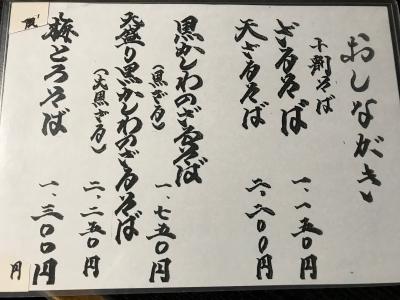 おしながき
十割そば
ざるそば 一、一五〇円
天ざるそば 二、二〇〇円
黒かしわのざるそば
(黒ざる) 一、七五〇円
大盛り黒かしわのざるそば
(大黒ざる) 二、二五〇円
梅とろそば 一、三〇〇円
円